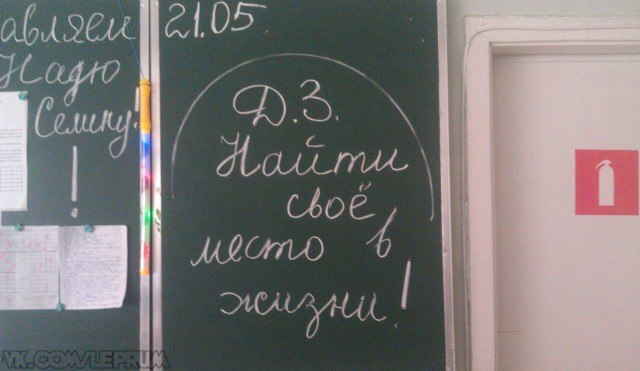 авляем
Надю
Семину.
!
21.05
Д.З.
Найти
своё
место в
жизни!
VK.COM/LEPRUM